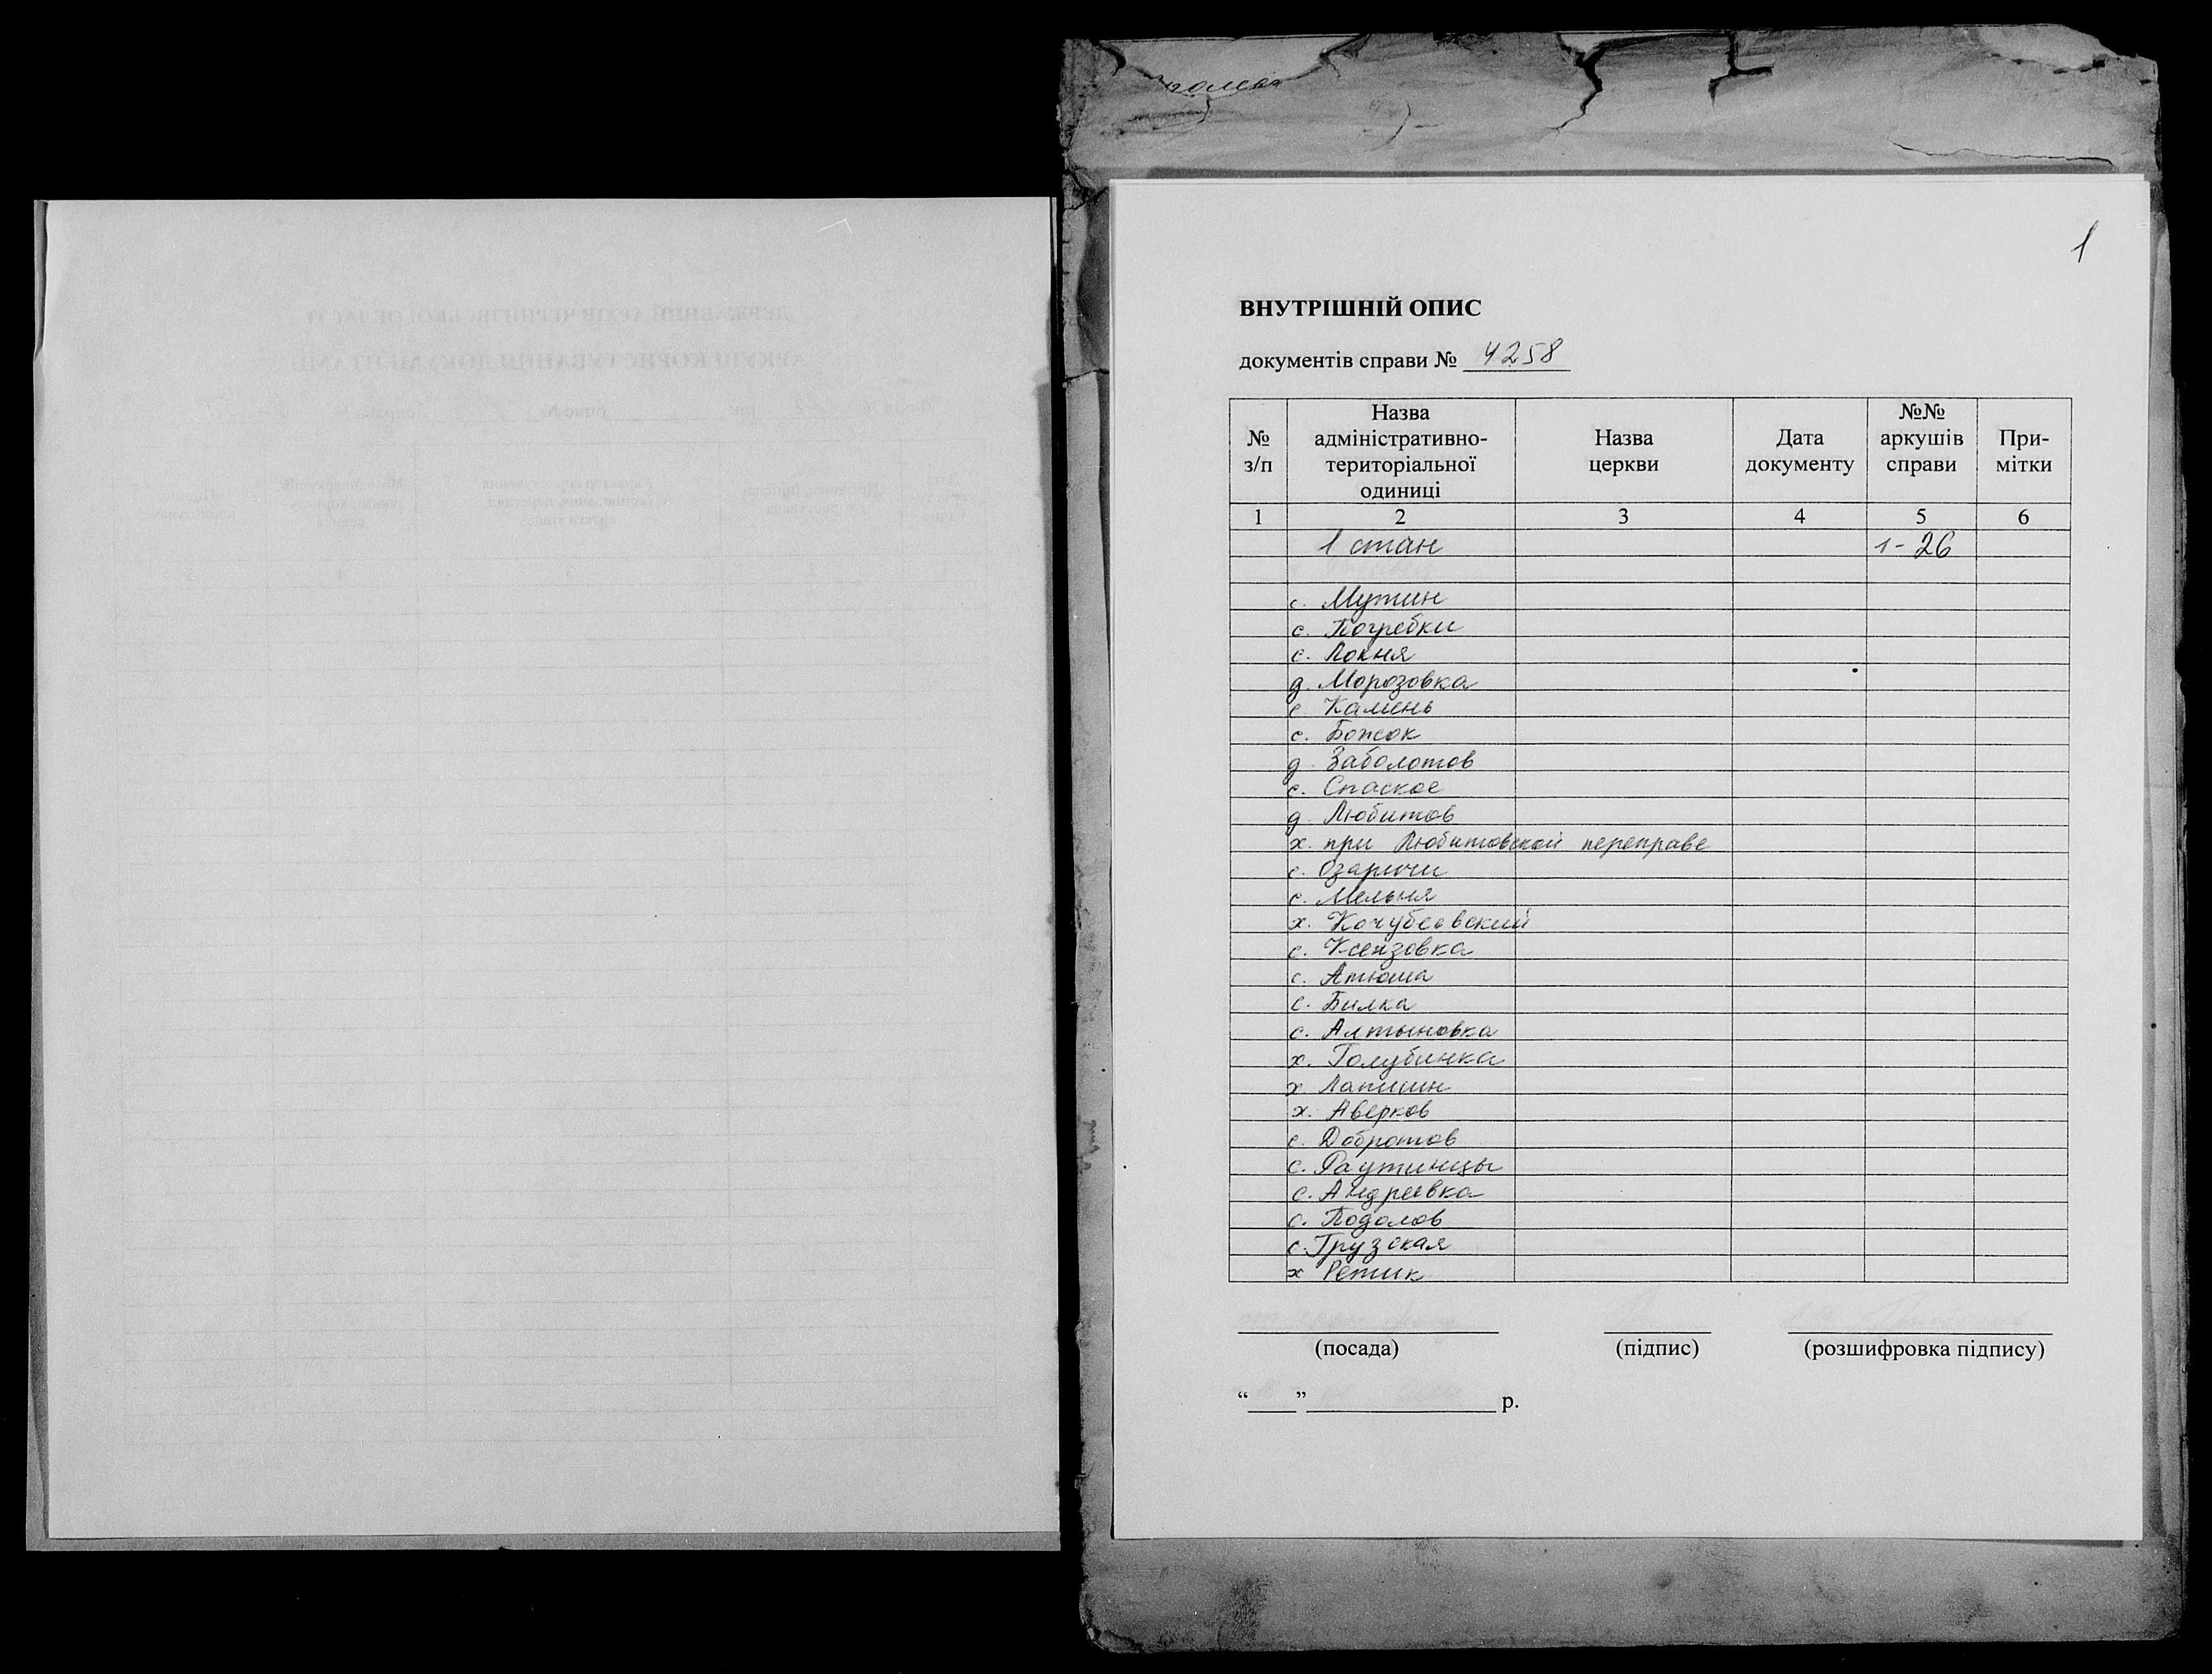 1
ВНУТРІШНІЙ ОПИС
документів справи № 4258
№ з/п | Назва адміністративно-територіальної одиниці | Назва церкви | Дата документу | №№ аркушів справи | При-мітки
1 2 3 4 5 6
1 стан 1-26
с. Мутин
с. Погребки
с. Локня
д. Морозовка
с. Камень
с. Божок
д. Заболотов
с. Спаское
д. Любитов
х. при Любитовской переправе
с. Озаричи
с. Мельня
х. Кочубеевский
с. Ксензовка
с. Атюша
с. Билка
с. Алтыновка
х. Голубинка
х Лапшин
х. Аверков
с. Добротов
с. Раутинцы
с. Андреевка
с. Подолов
с. Грузская
х Ретик
(посада) (підпис) (розшифровка підпису)
“ ” р.